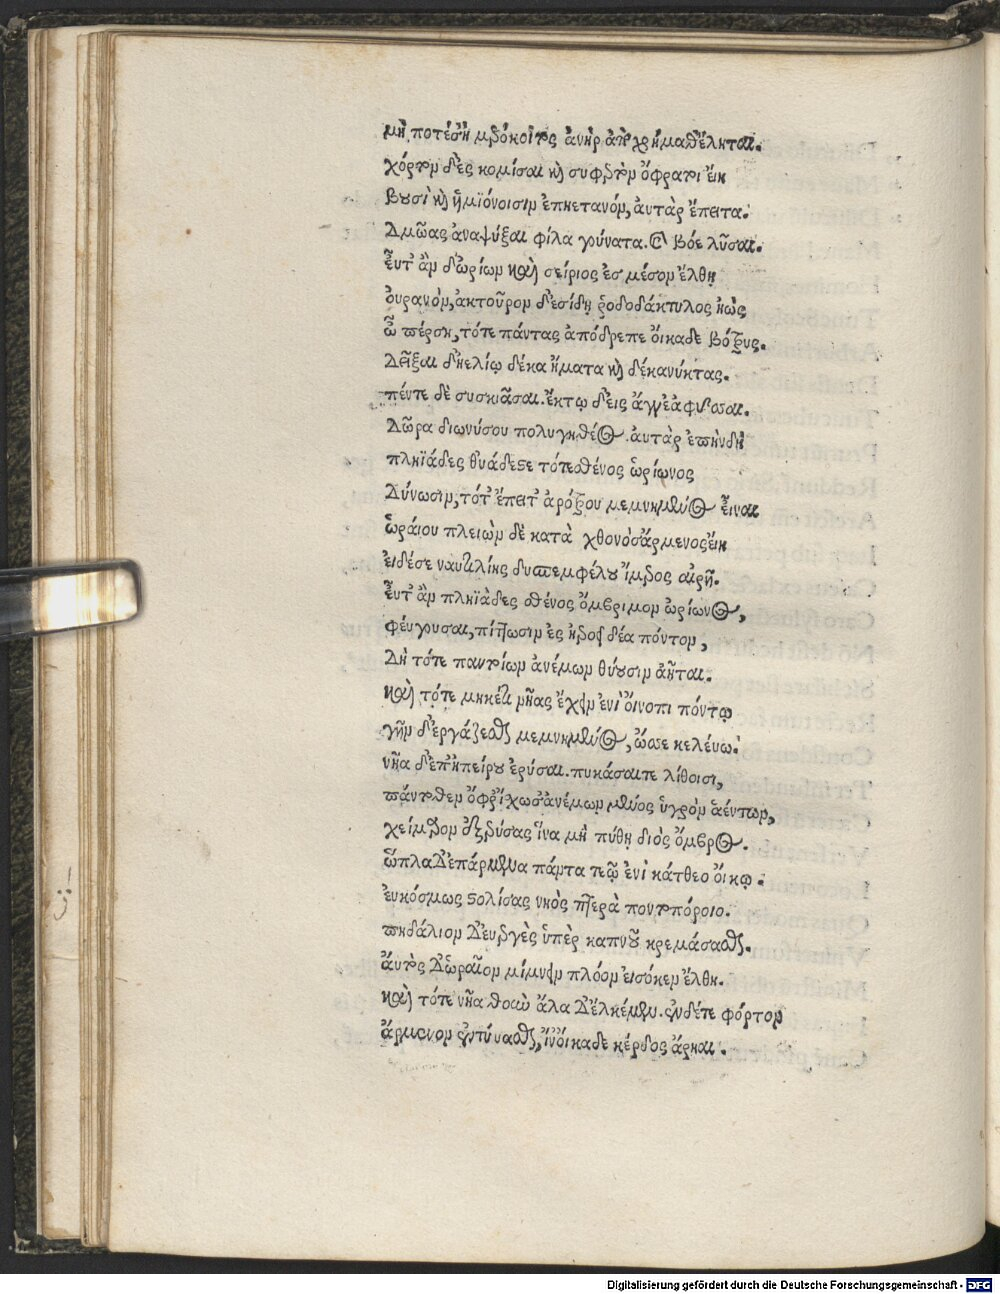 μή ποτέ σ' ἡμερόκοιτος ἀνὴρ ἀπὸ χρήμαθ' ἕληται.
χόρτον δ' ἐς κομίσαι καὶ συρφετὸν ὄφρα τι εἴη
βουσὶ καὶ ἡμιόνοισιν ἐπηετανόν, αὐτὰρ ἔπειτα.
Δμῶας ἀναψύξαι φίλα γούνατα. καὶ βόε λῦσαι.
εὖτ' ἂν δ' ὠρίων καὶ σείριος ἐς μέσον ἔλθη
οὐρανόν, ἀκτοῦρον δ' ἐσίδη ῥοδοδάκτυλος ἠώς
ὦ πέρση, τότε πάντας ἀπόδρεπε οἴκαδε βότρυς.
Δεῖξαι δ' ἠελίῳ δέκα ἤματα καὶ δέκα νύκτας.
πέντε δὲ συσκιᾶσαι. ἕκτῳ δ' εἰς ἄγγε' ἀφύσαι.
Δῶρα διωνύσου πολυγηθέος. αὐτὰρ ἐπὴν δὴ
πληϊάδες θ' υάδες τε τότε σθένος ὠρίωνος
Δύνωσιν, τότ' ἔπειτ' ἀρότρου μεμνημένος εἶναι
ὡραίου πλειὼν δὲ κατὰ χθονὸς ἄρμενος εἴη
εἰ δέ σε ναυτιλίης δυσπεμφέλου ἵμερος αἱρῇ.
εὖτ' ἂν πληϊάδες σθένος ὄμβριμον ὠρίωνος,
φεύγουσαι, πίπτωσιν ἐς ἠεροειδέα πόντον,
Δὴ τότε παντοίων ἀνέμων θύουσιν ἀῆται.
καὶ τότε μηκέτι νῆας ἔχειν ἐνὶ οἴνοπι πόντῳ
γῆν δ' ἐργάζεσθαι μεμνημένος, ὥς σε κελεύω.
νῆα δ' ἐπ' ἠπείρου ἐρύσαι. πυκάσαι τε λίθοισι,
πάντοθεν ὄφρ' ἴχωσ' ἀνέμων μένος ὑγρὸν ἀέντων,
χείμαρον ἐξερύσας ἵνα μὴ πύθη διὸς ὄμβρος.
ὅπλα δ' ἐπάρμενα πάντα τεῷ ἐνὶ κάτθεο οἴκῳ.
εὐκόσμως στολίσας νηὸς πτερὰ ποντοπόροιο.
πηδάλιον δ' εὐεργὲς ὑπὲρ καπνοῦ κρεμάσασθαι.
αὐτὸς δ' ὡραῖον μίμνειν πλόον εἰσόκεν ἔλθη.
καὶ τότε νῆα θοὴν ἅλα δ' ἑλκέμεν. ἐν δέ τε φόρτον
ἄρμενον ἐντύνασθαι, ἵν' οἴκαδε κέρδος ἄρηαι.
Digitalisierung gefördert durch die Deutsche Forschungsgemeinschaft - DFG